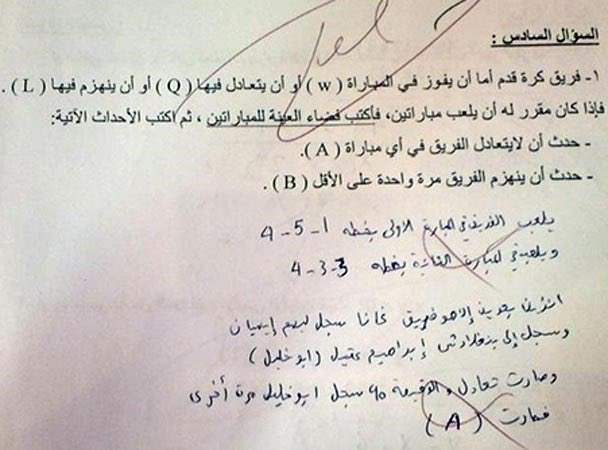 السؤال السادس :
١- فريق كرة قدم أما أن يفوز في المباراة ( w ) أو أن يتعادل فيها ( Q ) أو أن ينهزم فيها ( L ) .
فإذا كان مقرر له أن يلعب مباراتين، فأكتب فضاء العينة للمباراتين ، ثم اكتب الأحداث الآتية:
- حدث أن لايتعادل الفريق في أي مباراة ( A ).
- حدث أن ينهزم الفريق مرة واحدة على الأقل ( B ) .
يلعب الفريق في المباراة الأولى بخطه 1-5-4
ويلعب في المباراة الثانية بخطه 3-3-4
فريق غانا سجل لهم إيسيان
وسجل إلى بنغلادش إبراهيم عقيل (ابو خليل)
وصارت تعادل و الدقيقة 90 سجل ابو خليل مرة أخرى
فصارت (A)